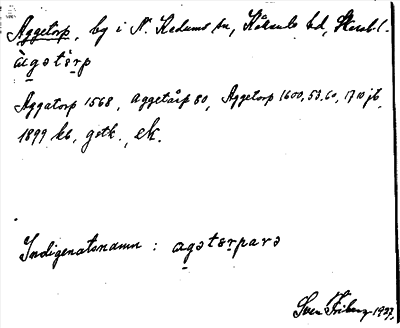 Aggetorp, by i N. Kedums sn, Kållands hd, Skarab. l.
àgətè̠rp
Aggatorp 1568, Aggetårp 80, Aggetorp 1600, 53, 60, 1710 jb,
1899 kb, gotk., ek.
Indigenatsnamn: agətərparə
Sven Friberg 1937.